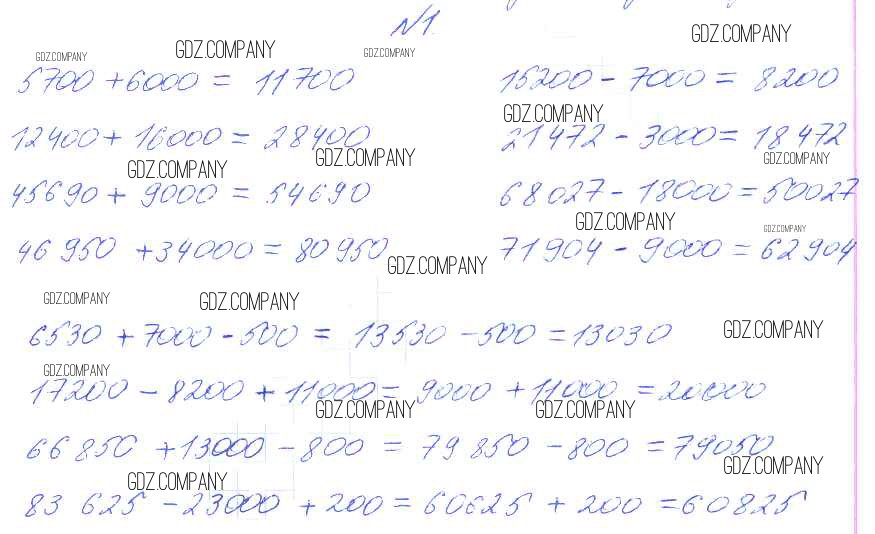 N1.
GDZ.COMPANY GDZ.COMPANY GDZ.COMPANY GDZ.COMPANY
5700 + 6000 = 11700 15200 - 7000 = 8200
GDZ.COMPANY
12400 + 16000 = 28400 21472 - 3000 = 18472
GDZ.COMPANY GDZ.COMPANY GDZ.COMPANY
45690 + 9000 = 54690 68027 - 18000 = 50027
GDZ.COMPANY GDZ.COMPANY
46950 + 34000 = 80950 71904 - 9000 = 62904
GDZ.COMPANY
GDZ.COMPANY GDZ.COMPANY
6530 + 7000 - 500 = 13530 - 500 = 13030 GDZ.COMPANY
GDZ.COMPANY
17200 - 8200 + 11000 = 9000 + 11000 = 20000
GDZ.COMPANY GDZ.COMPANY
66850 + 13000 - 800 = 79850 - 800 = 79050
GDZ.COMPANY GDZ.COMPANY
83625 - 23000 + 200 = 60625 + 200 = 60825